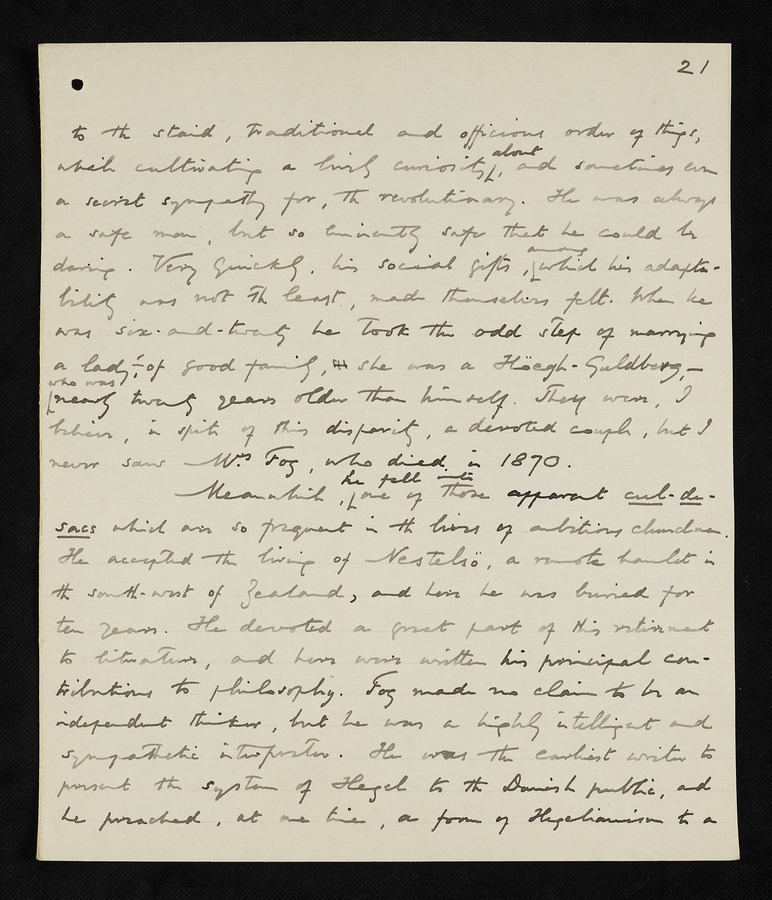 21
to the staid, traditional and officious order of things,
while cultivating a lively curiosity about, and sometimes even
a secret sympathy for, the revolutionary. He was always
a safe man, but so eminently safe that he could be
daring. Very quickly, his social gifts, among which his adapta-
bility was not the least, made themselves felt. When he
was six-and-twenty he took the odd step of marrying
a lady – of good family, she was a Höegh-Guldberg, –
who was nearly twenty years older than himself. They were, I
believe, in spite of this disparity, a devoted couple, but I
never saw Mrs Fog, who died in 1870.
Meanwhile, he fell into one of those apparent cul-de-
sacs which are so frequent in the lives of ambitious churchmen.
He accepted the living of Nestelsö, a remote hamlet in
the south-west of Zealand, and here he was buried for
ten years. He devoted a great part of this retirement
to literature, and here were written his principal con-
tributions to philosophy. Fog made no claim to be an
independent thinker, but he was a highly intelligent and
sympathetic interpreter. He was the earliest writer to
present the system of Hegel to the Danish public, and
he preached, at one time, a form of Hegelianism to a